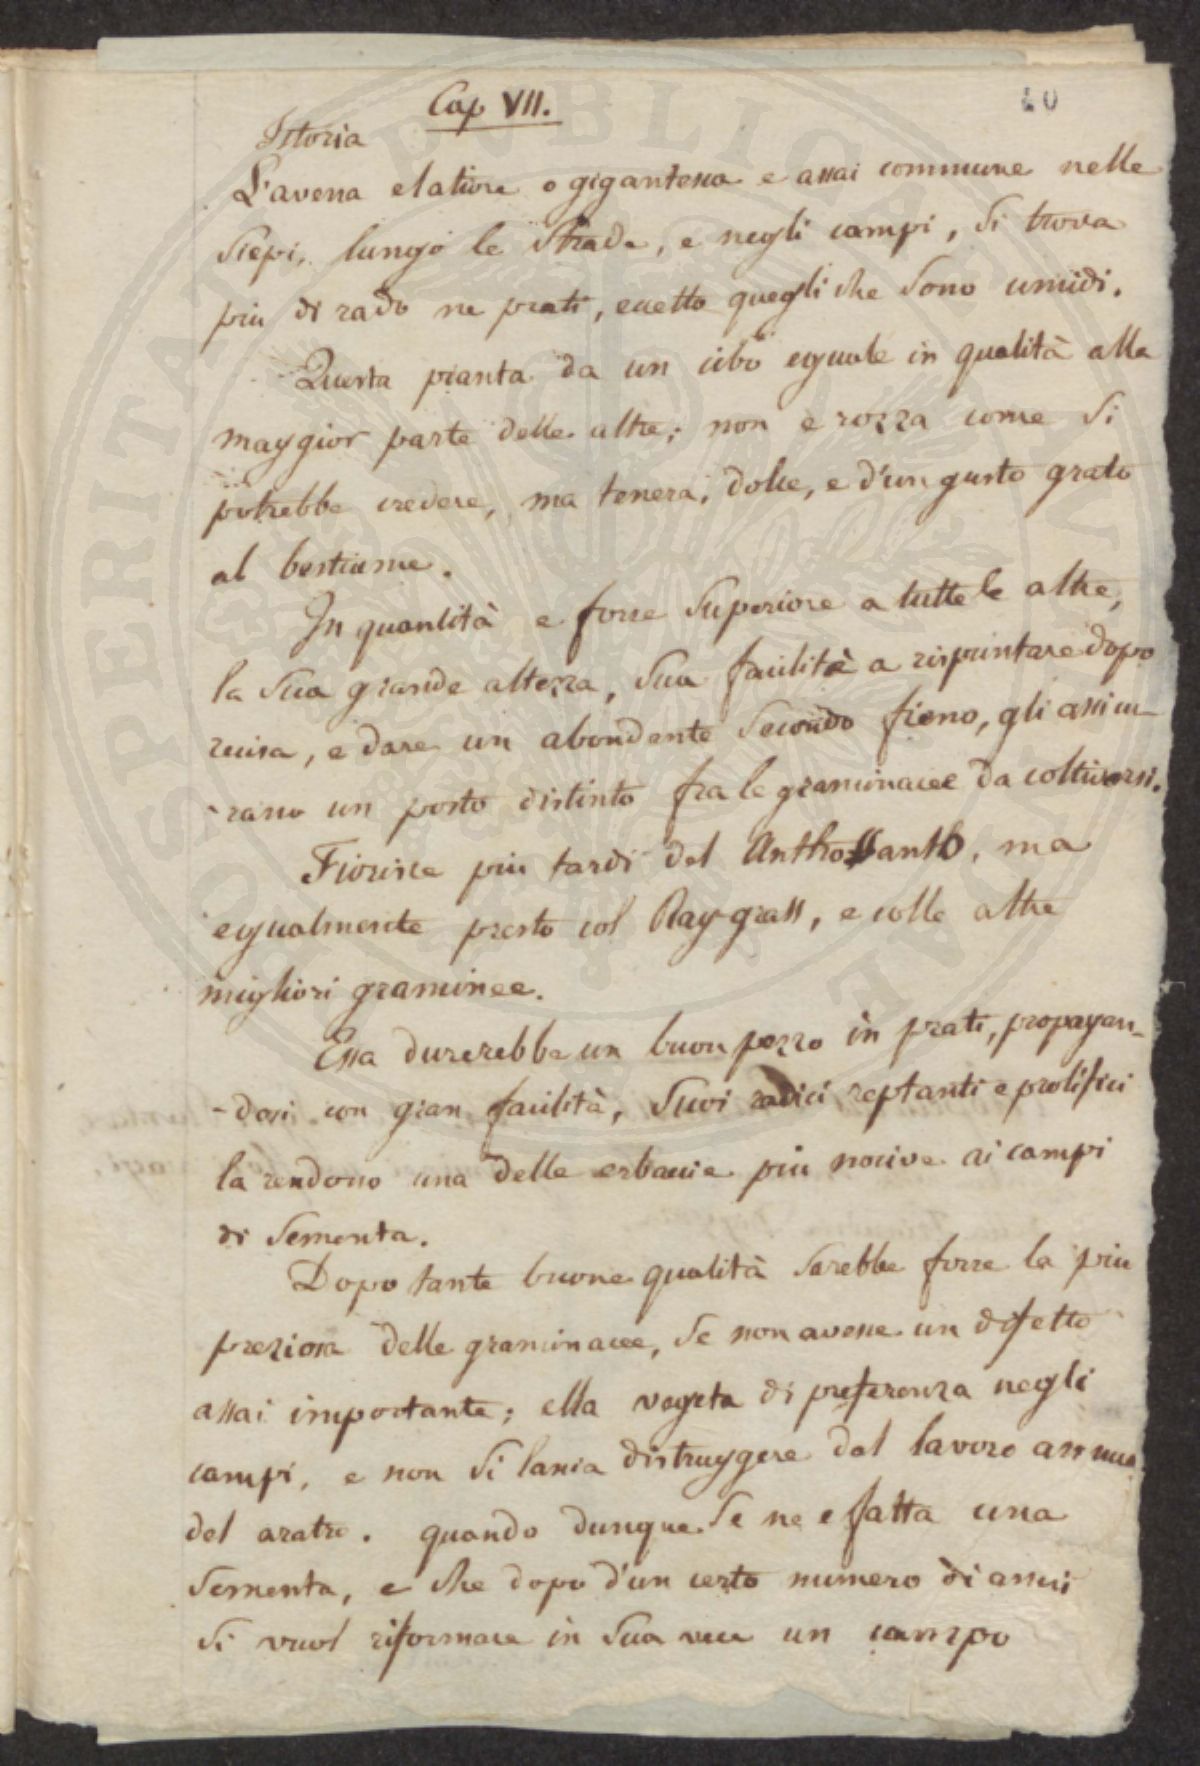 Cap VII.
40
Istoria
L'avena elatiore o gigantessa e assai commune nelle
siepi, lungo le strade, e negli campi, si trova
piu di rado ne prati, ecetto quegli che sono umidi.
Questa pianta da un cibo eguale in qualità alla
maggior parte delle altre; non e rozza come si
potrebbe credere, ma tenera, dolce, e d'un gusto grato
al bestiame.
In quantità e forse superiore a tutte le altre,
la sua grande altezza, sua facilità a rispuntare dopo
recisa, e dare un abondente secondo fieno, gli assicu-
-rano un posto distinto fra le graminacee da coltivarsi.
Fiorisce piu tardi del Anthossanto, ma
egualmente presto col Ray-grass, e colle altre
migliori graminee.
Essa durerebbe un buon pezzo in prati, propagan-
-dosi con gran facilità, suoi radici reptanti e prolifici
la rendono una delle erbaccie piu nocive ai campi
di sementa.
Dopo tante buone qualità sarebbe forse la piu
preziosa delle graminacee, se non avesse un difetto
assai importante; ella vegeta di preferenza negli
campi, e non si lascia distruggere dal lavoro annuo
del aratro. quando dunque se ne e fatta una
sementa, e che dopo d'un certo numero di anni
si vuol riformare in sua vece un campo
HOSPERITATI PUBLICAE AUGENDAE